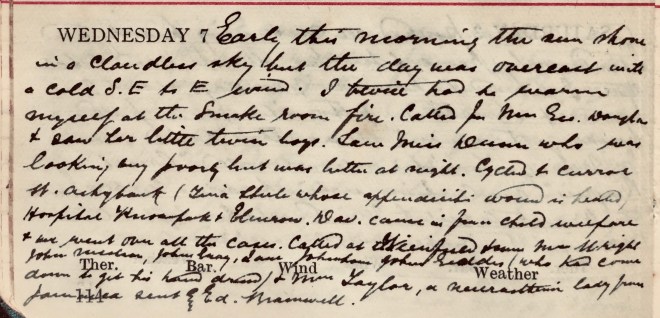 WEDNESDAY 7 Early this morning the sun shone
in a cloudless sky but the day was overcast with
a cold S.E to E wind. I twice had to warm
myself at the Smoke room fire. Called for Mrs Geo. Douglas
& saw her little twin boys. Saw Miss Dunn who was
looking very poorly but was better at night. Cycled to
St. (Tina whose appendicitis wound is healed)
Hospital & Dav. came in from child welfare
& we went over all the cases. Called at & saw Mrs Wright
John John Gray, Jane Johnston John Geddes (who had come
Ther. Bar. Wind Weather
down to get his hand dressed) & Mrs Taylor, a neurasthenic lady from
114
sent by Ed. Bramwell.